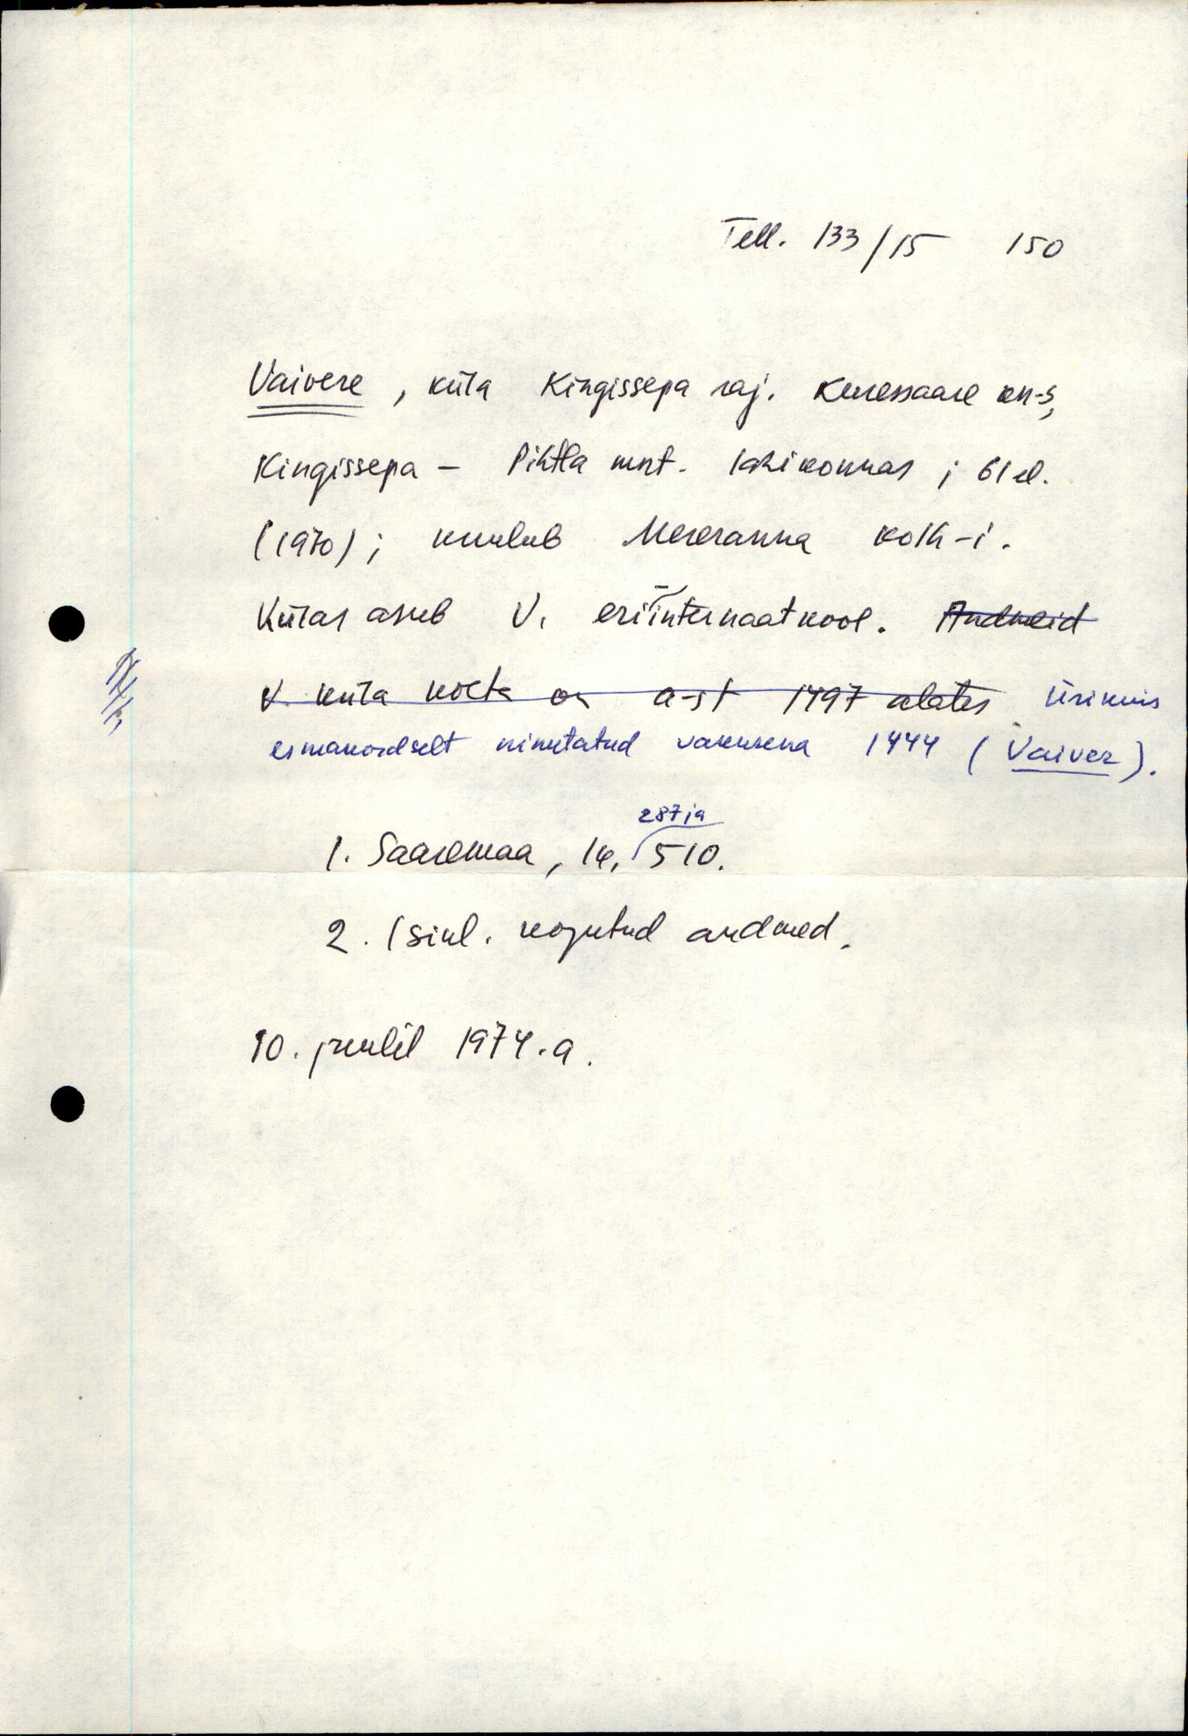 Tell. 133/15 150
Vaivere, küla Kingissepa raj. Kuressaare kn-s,
Kingissepa – Pihtla mnt. lähikonnas; 61 el.
(1970); kuulub Mereranna kolh-i.
Külas asub V. eriinternaatkool. Andmeid
V. küla kohta on a-st 1497 alates Ürikuis
esmakordselt nimetatud vakusena 1444 (Vaiver).
287 ja
1. Saaremaa, lk, 510.
2. Isikl. kogutud andmed.
10. juulil 1974.a.